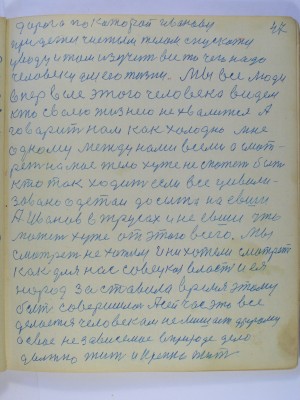 дорога по которой иванову 47
придежи чистым телом спускоту
уводу и там изучит все то чего надо
человеку для его жизни. Мы все люди
вперв сле этого человека видем
кто своею жизнею не хвалится А
говарит нам как холодно мне
одному между нами всеми а смот-
реть на мае тело хуже не сможет быт
кто так ходит если все цивили-
зовано одетам до сыта на евши
А Иванив в трусах и не евши что
может хуже от этого всего. Мы
смотреть не хотим и ни хотели смотреть
как для нас совецкая власт и ея
народ заставила время этому
быт совершился А сечас это все
делается человекам не мешает другому
а свае не зависемае в природе дело
должно жит и крепко жит